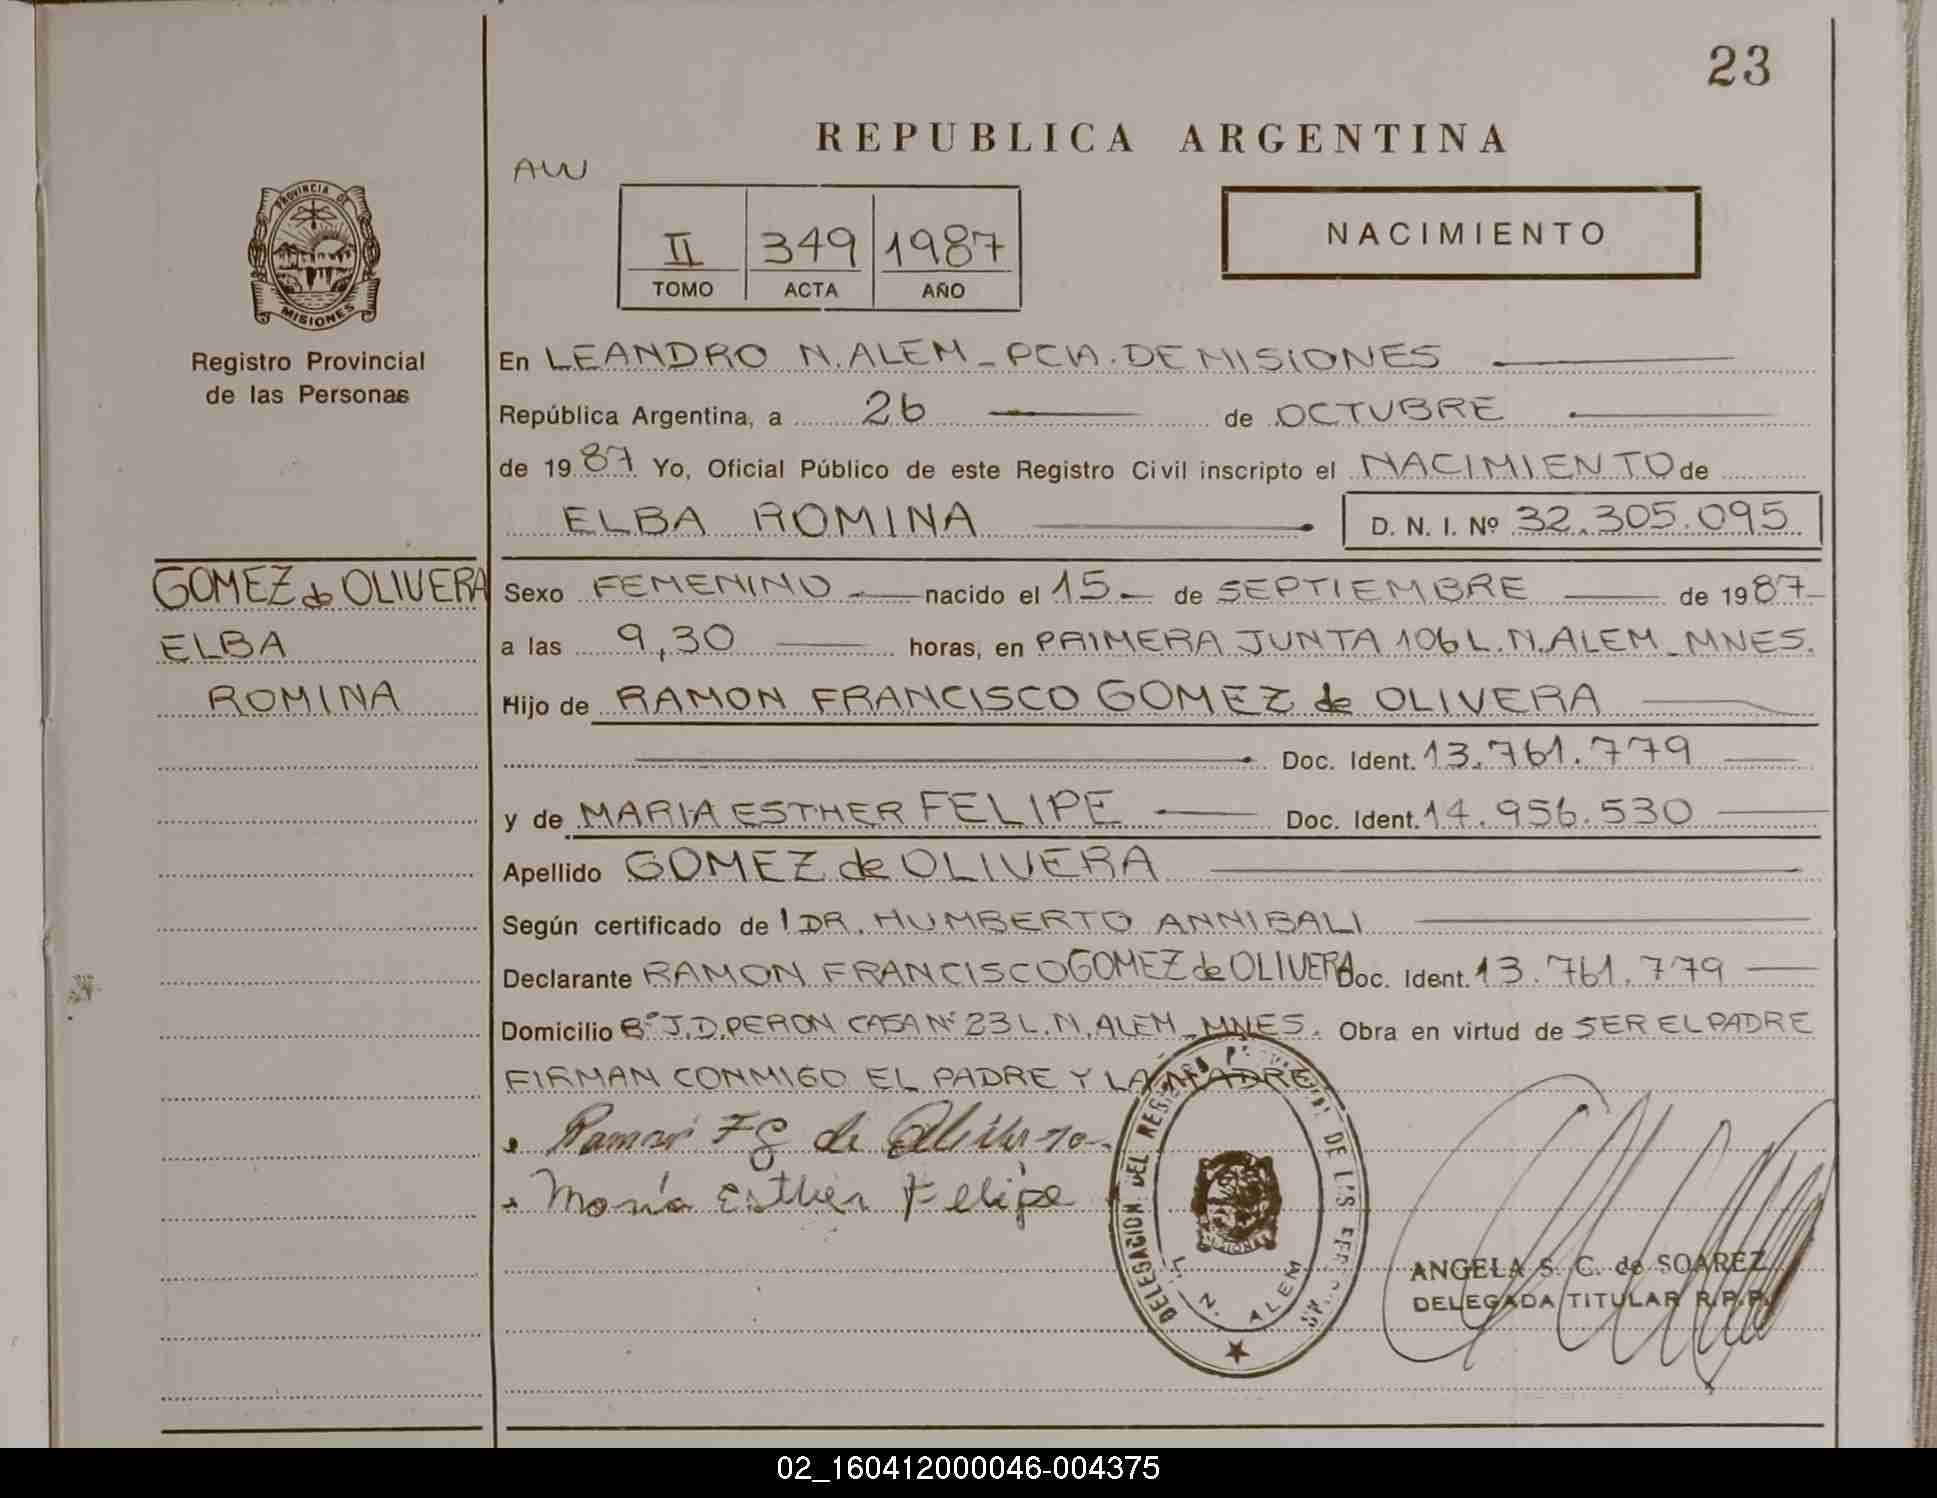 23
REPUBLICA ARGENTINA
AW
PROVINCIA DE
MISIONES
II 349 1987
TOMO ACTA AÑO
NACIMIENTO
Registro Provincial
de las Personas
En LEANDRO N. ALEM - PCIA. DE MISIONES
República Argentina, a 26 de OCTUBRE
de 1987 Yo, Oficial Público de este Registro Civil inscripto el NACIMIENTO de
ELBA ROMINA D. N. I. Nº 32.305.095
GOMEZ de OLIVERA
ELBA
ROMINA
Sexo FEMENINO nacido el 15 - de SEPTIEMBRE de 1987
a las 9,30 horas, en PRIMERA JUNTA 106 L. N. ALEM - MNES.
Hijo de RAMON FRANCISCO GOMEZ de OLIVERA
Doc. Ident. 13.761.779
y de MARIA ESTHER FELIPE Doc. Ident. 14.956.530
Apellido GOMEZ de OLIVERA
Según certificado de l DR. HUMBERTO ANNIBALI
Declarante RAMON FRANCISCO GOMEZ de OLIVERA Doc. Ident. 13.761.779
Domicilio Bº J. D. PERON CASA Nº 23 L. N. ALEM - MNES. Obra en virtud de SER EL PADRE
FIRMAN CONMIGO EL PADRE Y LA MADRE
Ramon F G de Olivera
María Esther Felipe
DELEGACION DEL REGISTRO PROVINCIAL DE LAS PERSONAS
MISIONES
L. N. ALEM
ANGELA S. C. de SOAREZ
DELEGADA TITULAR R.P.P.
02_160412000046-004375